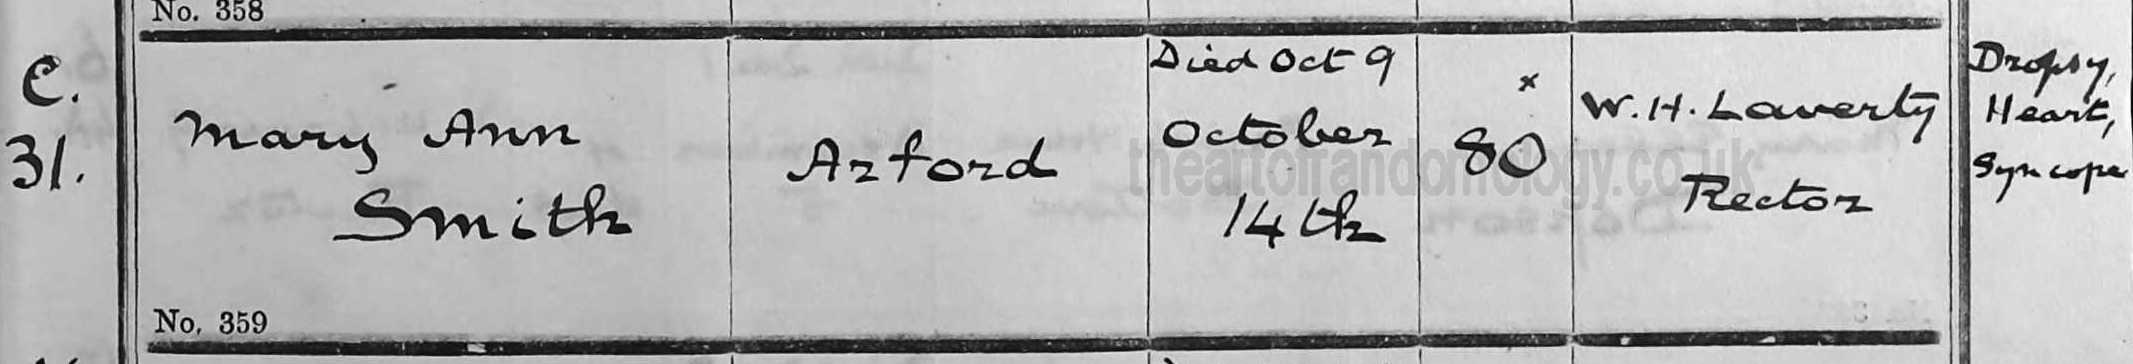 No. 358
C.
31.
Mary Ann
Smith
Arford
Died Oct 9
October
14th
x
80
W. H. Laverty
Rector
Dropsy,
Heart,
Syncope
No. 359
theartofrandomology.co.uk